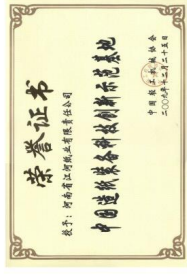 荣誉证书
授予：河南省江河纸业有限责任公司
中国造纸装备科技创新示范基地
中国轻工机械协会
二〇〇九年十二月二十五日